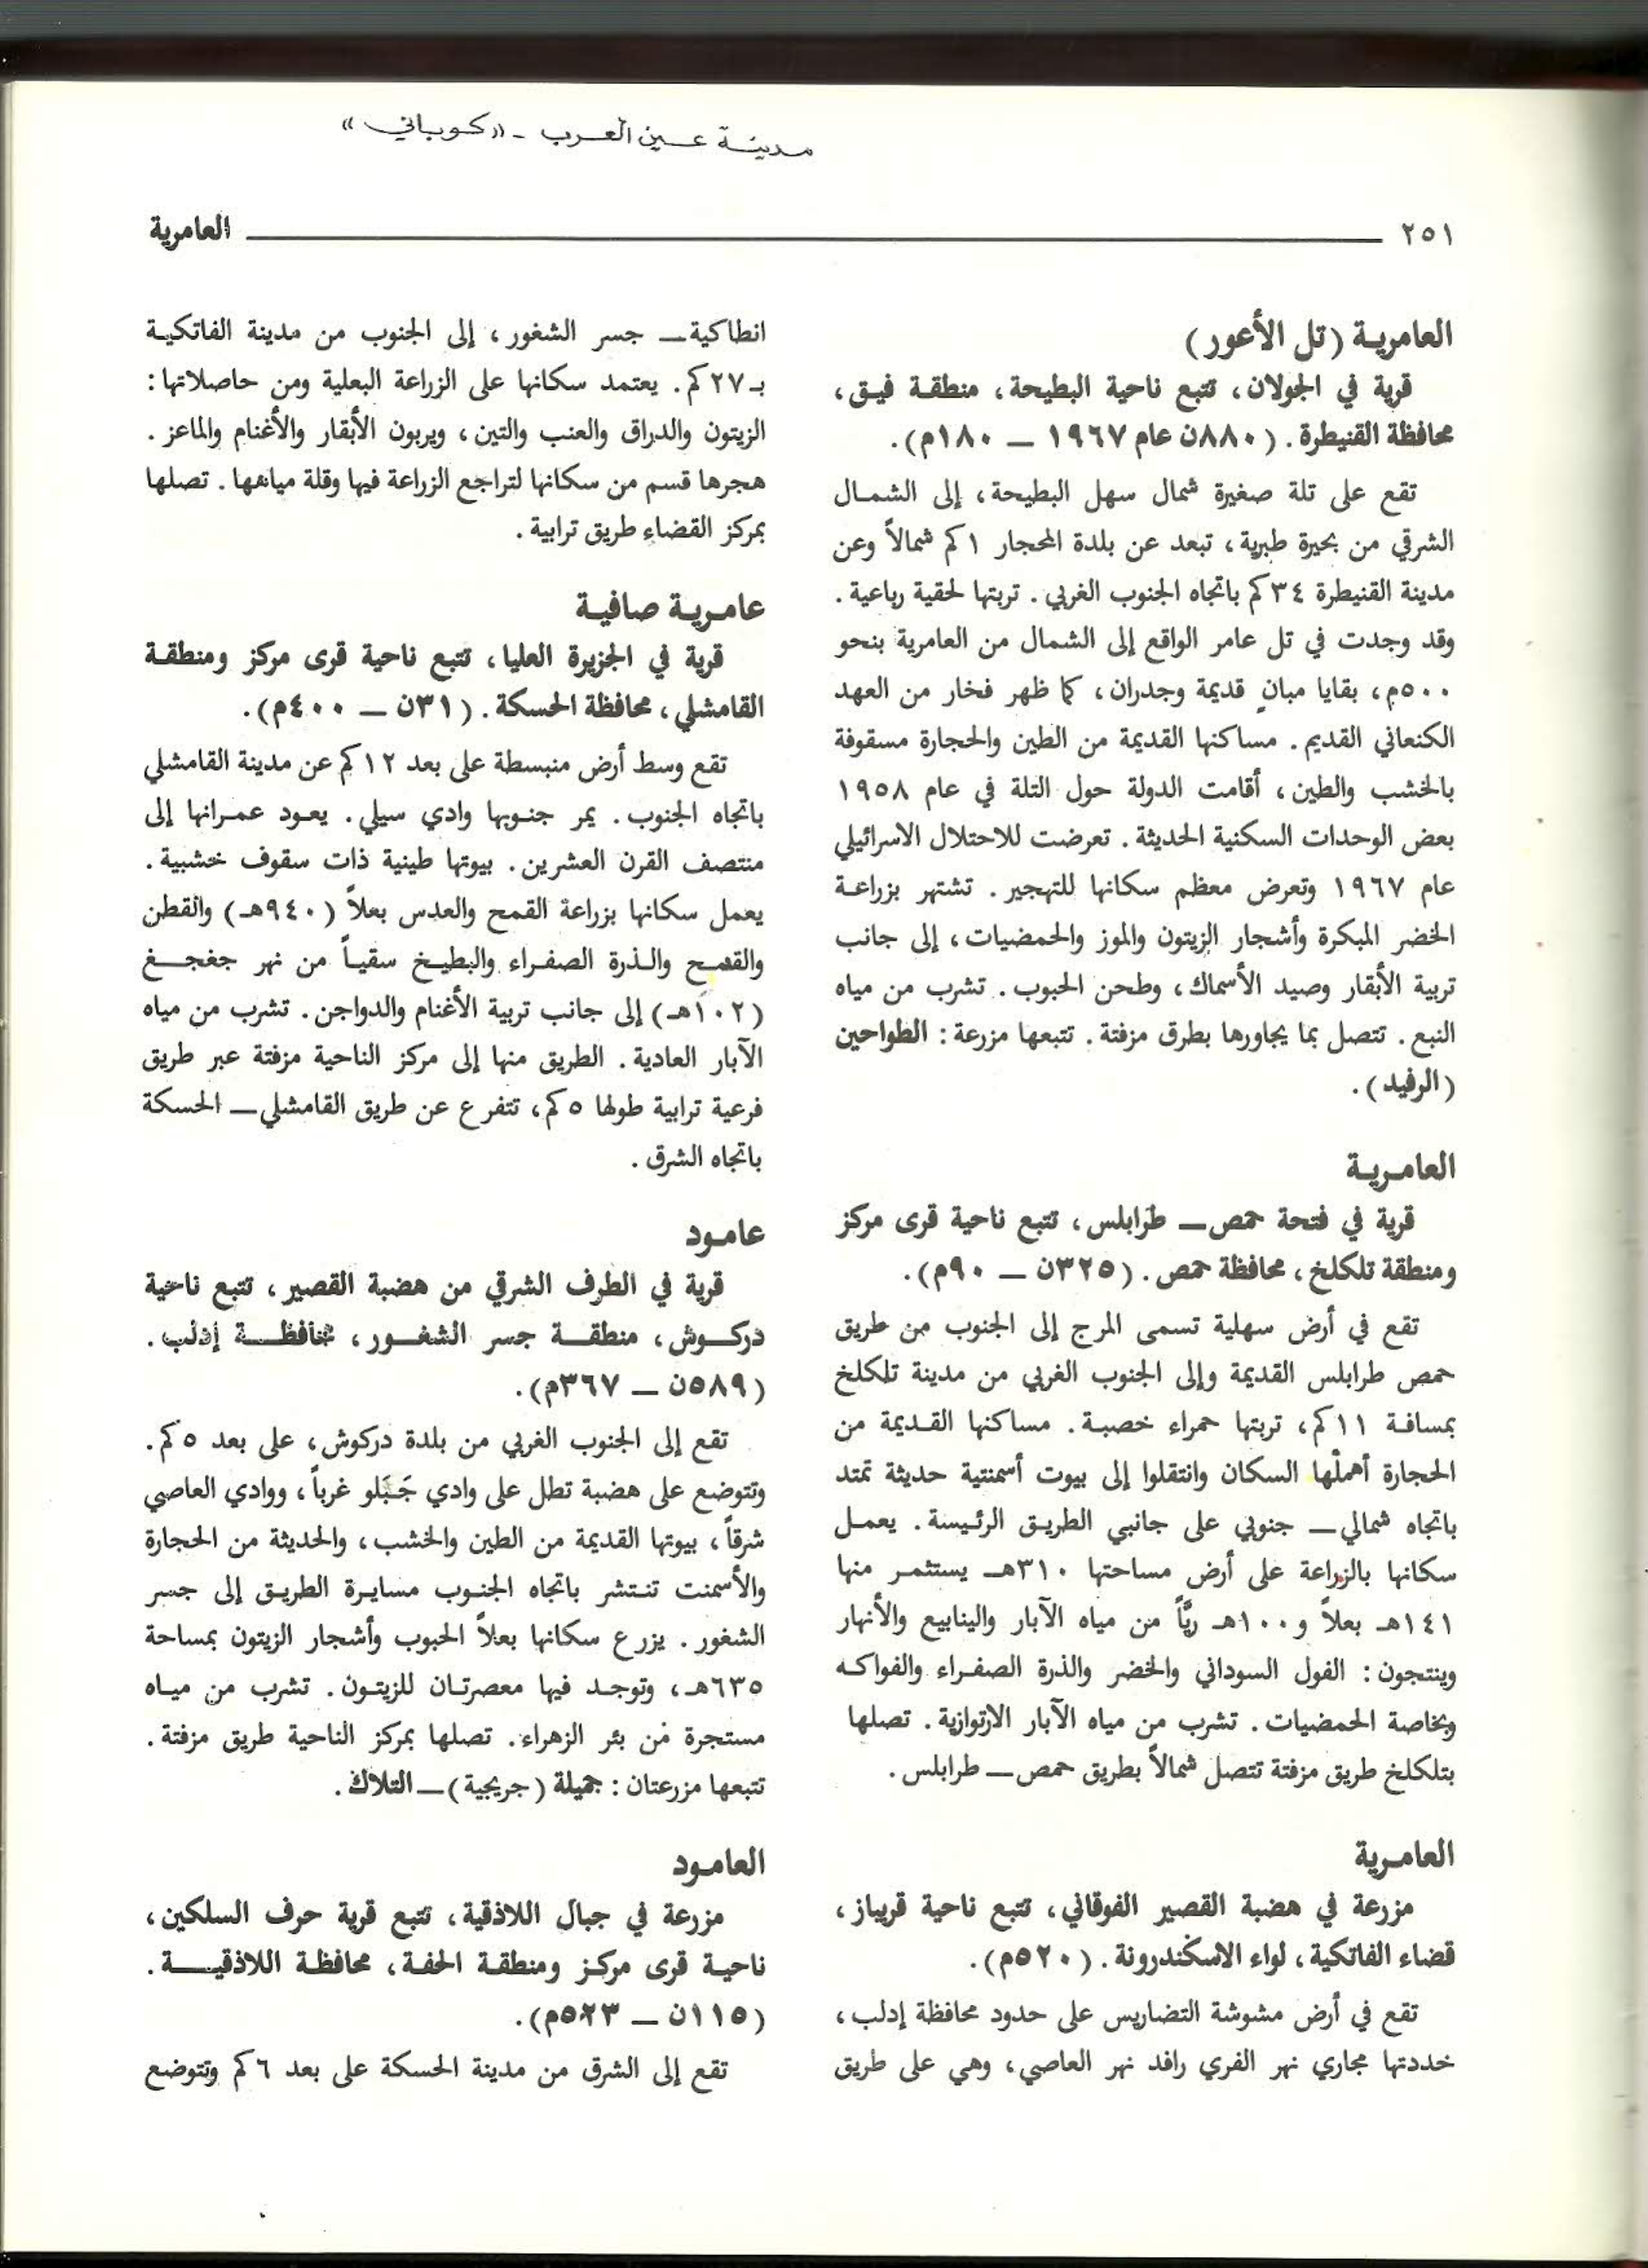 مدينة عين العرب - «كوباني»
٢٥١ العامرية
العامرية (تل الأعور)
قرية في الجولان، تتبع ناحية البطيحة، منطقة فيق،
محافظة القنيطرة. (٨٨٠ن عام ١٩٦٧ — ١٨٠م).
تقع على تلة صغيرة شمال سهل البطيحة، إلى الشمال
الشرقي من بحيرة طبرية، تبعد عن بلدة المحجار ١كم شمالاً وعن
مدينة القنيطرة ٣٤كم باتجاه الجنوب الغربي. تربتها لحقية رباعية.
وقد وجدت في تل عامر الواقع إلى الشمال من العامرية بنحو
٥٠٠م، بقايا مبانٍ قديمة وجدران، كما ظهر فخار من العهد
الكنعاني القديم. مساكنها القديمة من الطين والحجارة مسقوفة
بالخشب والطين، أقامت الدولة حول التلة في عام ١٩٥٨
بعض الوحدات السكنية الحديثة. تعرضت للاحتلال الاسرائيلي
عام ١٩٦٧ وتعرض معظم سكانها للتهجير. تشتهر بزراعة
الخضر المبكرة وأشجار الزيتون والموز والحمضيات، إلى جانب
تربية الأبقار وصيد الأسماك، وطحن الحبوب. تشرب من مياه
النبع. تتصل بما يجاورها بطرق مزفتة. تتبعها مزرعة: الطواحين
(الرفيد).
العامرية
قرية في فتحة حمص — طرابلس، تتبع ناحية قرى مركز
ومنطقة تلكلخ، محافظة حمص. (٣٢٥ن — ٩٠م).
تقع في أرض سهلية تسمى المرج إلى الجنوب من طريق
حمص طرابلس القديمة وإلى الجنوب الغربي من مدينة تلكلخ
بمسافة ١١كم، تربتها حمراء خصبة. مساكنها القديمة من
الحجارة أهملها السكان وانتقلوا إلى بيوت أسمنتية حديثة تمتد
باتجاه شمالي — جنوبي على جانبي الطريق الرئيسة. يعمل
سكانها بالزراعة على أرض مساحتها ٣١٠هـ يستثمر منها
١٤١هـ بعلاً و١٠٠هـ ريّاً من مياه الآبار والينابيع والأنهار
وينتجون: الفول السوداني والخضر والذرة الصفراء والفواكه
وبخاصة الحمضيات. تشرب من مياه الآبار الارتوازية. تصلها
بتلكلخ طريق مزفتة تتصل شمالاً بطريق حمص — طرابلس.
العامرية
مزرعة في هضبة القصير الفوقاني، تتبع ناحية قرىباز،
قضاء الفاتكية، لواء الاسكندرونة. (٥٢٠م).
تقع في أرض مشوشة التضاريس على حدود محافظة إدلب،
خددتها مجاري نهر الفري رافد نهر العاصي، وهي على طريق
انطاكية — جسر الشغور، إلى الجنوب من مدينة الفاتكية
بـ٢٧كم. يعتمد سكانها على الزراعة البعلية ومن حاصلاتها:
الزيتون والدراق والعنب والتين، ويربون الأبقار والأغنام والماعز.
هجرها قسم من سكانها لتراجع الزراعة فيها وقلة مياهها. تصلها
بمركز القضاء طريق ترابية.
عامرية صافية
قرية في الجزيرة العليا، تتبع ناحية قرى مركز ومنطقة
القامشلي، محافظة الحسكة. (٣١ن — ٤٠٠م).
تقع وسط أرض منبسطة على بعد ١٢كم عن مدينة القامشلي
باتجاه الجنوب. يمر جنوبها وادي سيلي. يعود عمرانها إلى
منتصف القرن العشرين. بيوتها طينية ذات سقوف خشبية.
يعمل سكانها بزراعة القمح والعدس بعلاً (٩٤٠هـ) والقطن
والقمح والذرة الصفراء والبطيخ سقياً من نهر جغجغ
(١٠٢هـ) إلى جانب تربية الأغنام والدواجن. تشرب من مياه
الآبار العادية. الطريق منها إلى مركز الناحية مزفتة عبر طريق
فرعية ترابية طولها ٥كم، تتفرع عن طريق القامشلي — الحسكة
باتجاه الشرق.
عامود
قرية في الطرف الشرقي من هضبة القصير، تتبع ناحية
دركوش، منطقة جسر الشغور، محافظة إدلب.
(٥٨٩ن — ٣٦٧م).
تقع إلى الجنوب الغربي من بلدة دركوش، على بعد ٥كم.
وتتوضع على هضبة تطل على وادي جَبَلو غرباً، ووادي العاصي
شرقاً، بيوتها القديمة من الطين والخشب، والحديثة من الحجارة
والأسمنت تنتشر باتجاه الجنوب مسايرة الطريق إلى جسر
الشغور. يزرع سكانها بعلاً الحبوب وأشجار الزيتون بمساحة
٦٣٥هـ، وتوجد فيها معصرتان للزيتون. تشرب من مياه
مستجرة من بئر الزهراء. تصلها بمركز الناحية طريق مزفتة.
تتبعها مزرعتان: جميلة (جريجية) — التلاك.
العامود
مزرعة في جبال اللاذقية، تتبع قرية حرف السلكين،
ناحية قرى مركز ومنطقة الحفة، محافظة اللاذقية.
(١١٥ن — ٥٢٣م).
تقع إلى الشرق من مدينة الحسكة على بعد ٦كم وتتوضع